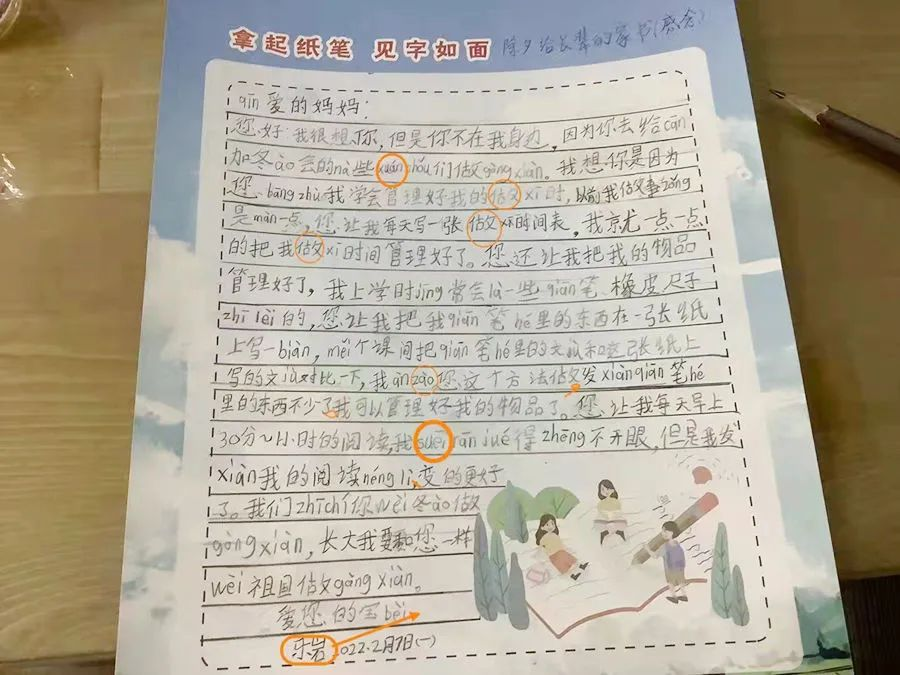 拿起纸笔 见字如面
除夕给长辈的家书(感念)
qīn爱的妈妈：
您好：我很想你，但是你不在我身边，因为你去给cān
加冬ào会的nà些xuán shǒu们做gòng xiàn。我想你是因为
您bāng zhù我学会管理好我的做xī时，以前我做事zǒng
是màn一点，您让我每天写一张做xī时间表，我京尤一点一点
的把我做xī时间管理好了。您还让我把我的物品
管理好了，我上学时jīng常会là一些qiān笔、橡皮、尺子
zhī lèi的，您让我把我qiān笔hé里的东西在一张纸
上写一biàn，měi个课间把qiān笔hé里的文jù和这张纸上
写的文jù对比一下，我àn zào您这个方法做发xiàn qiān笔hé
里的东西不少了我可以管理好我的物品了。您让我每天早上
30分~1小时的阅读，我suēi rán jué得zhēng不开眼，但是我发
xiàn我的阅读néng lì，变的更好
了。我们zhī chí你wèi冬ào做
gòng xiàn，长大我要和您一样
wèi祖国做gòng xiàn。
爱您的宝bèi
乐岩 2022.2月7日(一)